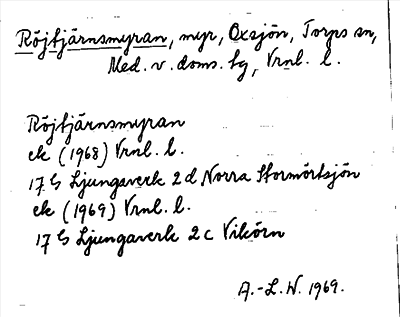 Röjtjärnsmyran, myr, Oxsjön, Torps sn,
Med. v. doms. tg, Vrnl. l.
Röjtjärnsmyran
ek (1968) Vrnl. l.
17 G Ljungaverk 2 d Norra Stormörtsjön
ek (1969) Vrnl. l.
17 G Ljungaverk 2 c Vikörn
A.-L. W. 1969.